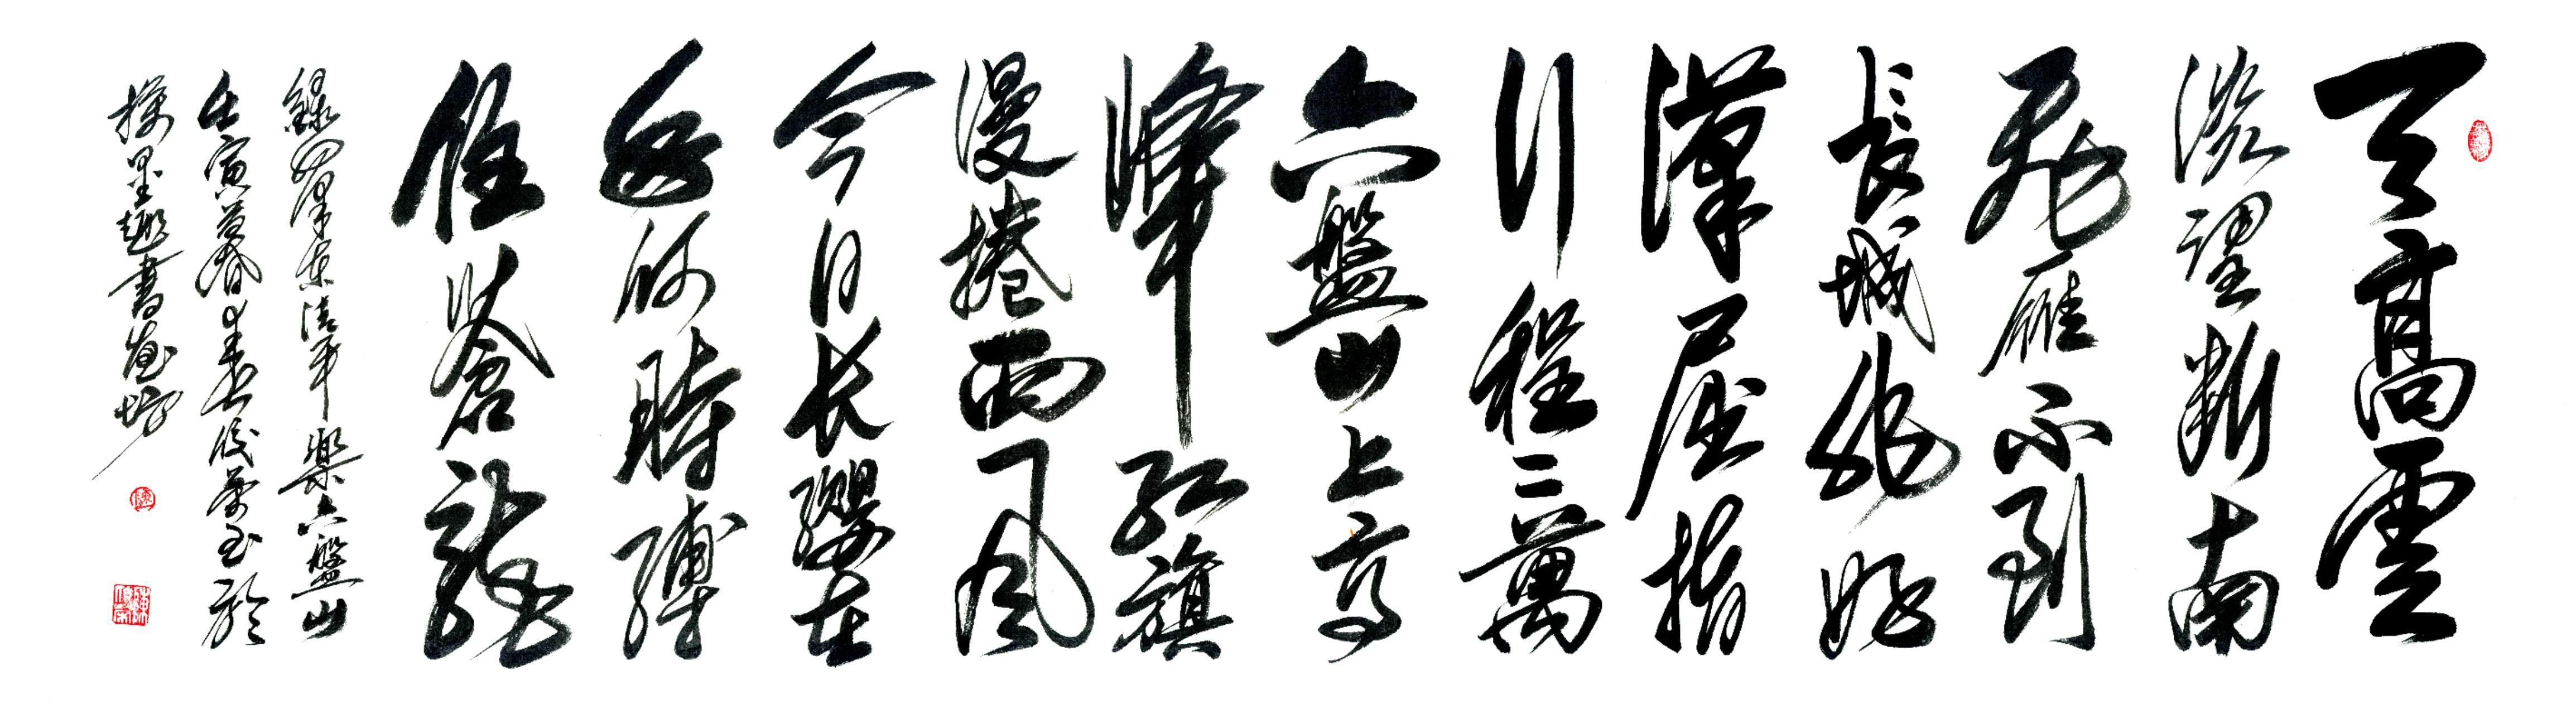 天高雲
淡望斷南
飛雁不到
長城非好
漢屈指
行程二萬
六盤山上高
峰红旗
漫捲西风
今日长纓在
手何時縛
住蒼龍
録毛澤東清平樂六盤山
壬寅暮春
墨趣書画坊